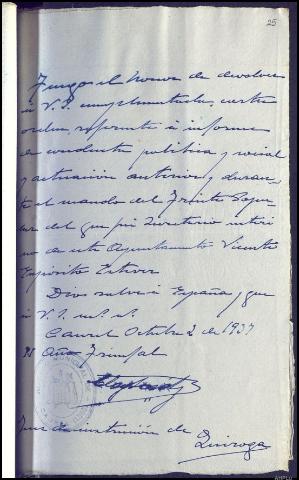 25
Tengo el honor de devolver
á V.S. cumplimentada, carta
orden, referente á informe
de conducta política y social
y actuación anterior y duran-
te el mando del Frente Popu
lar del que fué Secretario interi
no de este Ayuntamiento Vicente
Expósito Esteve
Dios salve á España y que
á V.S. m. a.
Caurel Octubre 2 de 1937
II Año Triunfal
Juez de instrucción de
Quiroga